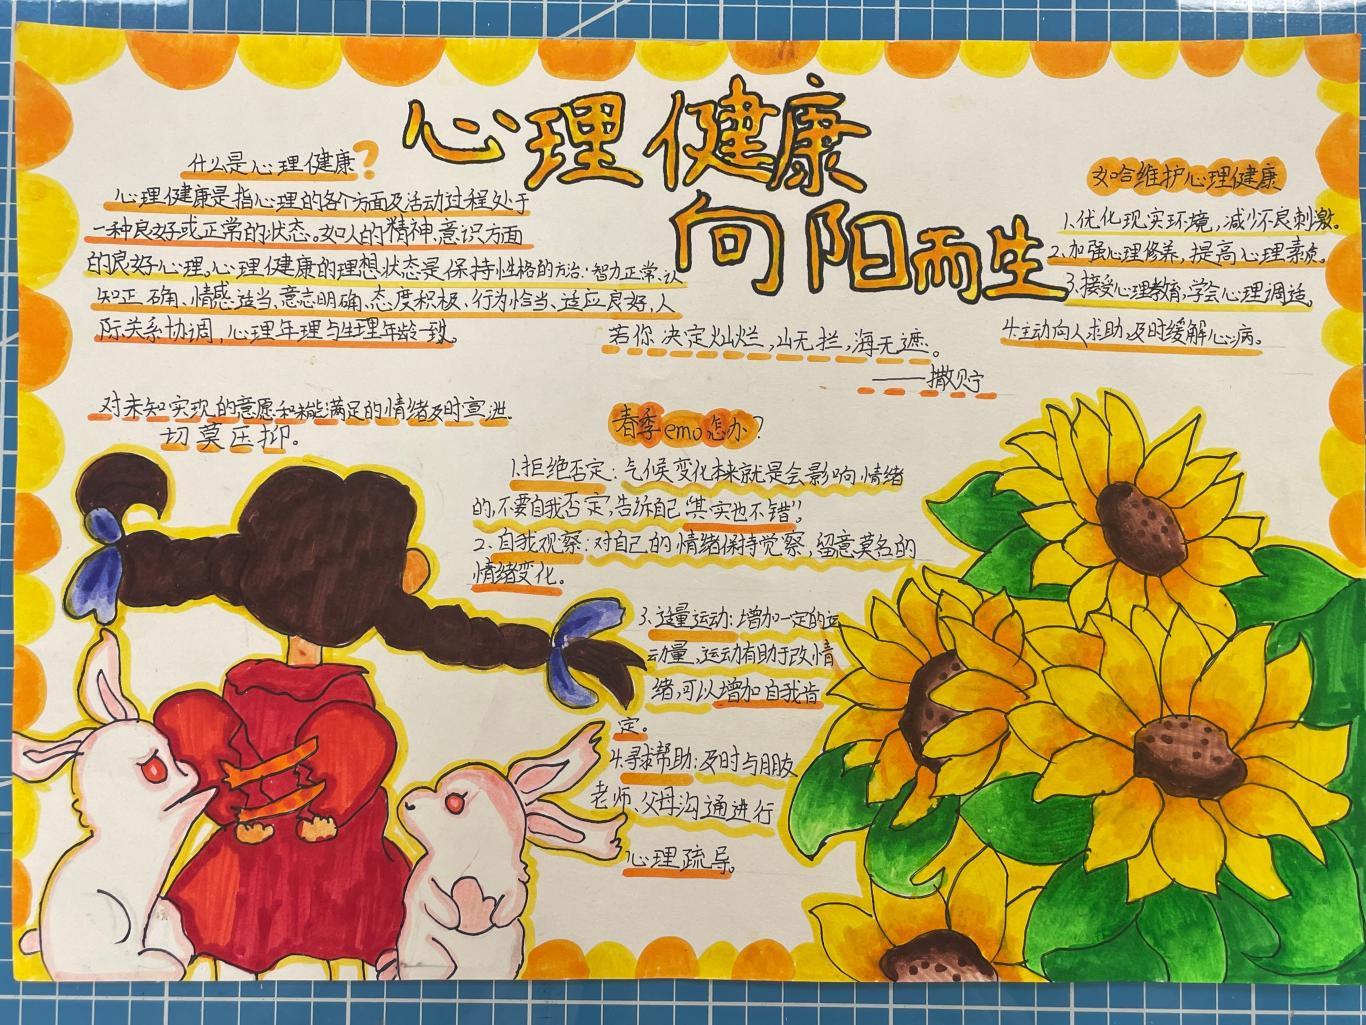 心理健康
向阳而生
什么是心理健康?
心理健康是指心理的各个方面及活动过程处于
一种良好或正常的状态。如人的精神、意识方面
的良好心理。心理健康的理想状态是保持性格的方治·智力正常、认
知正确、情感适当、意志明确、态度积极、行为恰当、适应良好,人
际关系协调,心理年理与生理年龄一致。
若你决定灿烂,山无拦,海无遮。
——撒贝宁
如哈维护心理健康
1.优化现实环境,减少不良刺激。
2.加强心理修养,提高心理素质。
3.接受心理教育,学会心理调适。
4主动向人求助及时缓解心病。
对未知实现的意愿和未能满足的情绪及时宣泄.
切莫压抑。
春季emo怎办?
1.拒绝否定:气候变化本来就是会影响情绪
的,不要自我否定,告诉自己"其实也不错"!
2.自我观察:对自己的情绪保持觉察,留意莫名的
情绪变化。
3.适量运动:增加一定的运
动量,运动有助于改情
绪,可以增加自我肯
定。
4.寻求帮助:及时与朋友
老师、父母沟通进行
心理疏导。